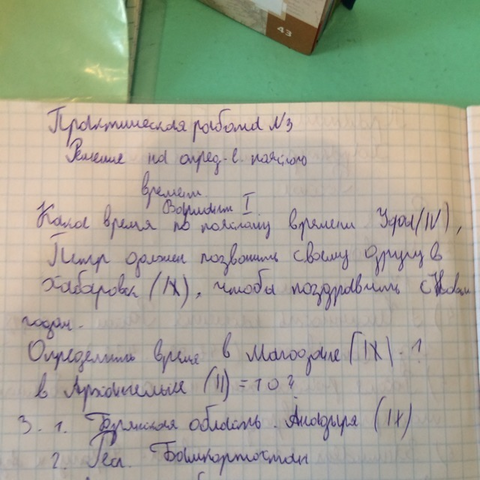 43
Практическая работа №3
Решение на опред-е поясного
времени.
Вариант I.
Какое время по поясному времени. Уфа (IV),
Петр должен позвонить своему другу в
Хабаровск (IX), чтобы поздравить с Новым
годом.
Определить время в Магадане (IX) - ?
в Архангельске (II) = 10 ?
3. 1. область. Анадыря (IX)
2. Респ. Башкортостан